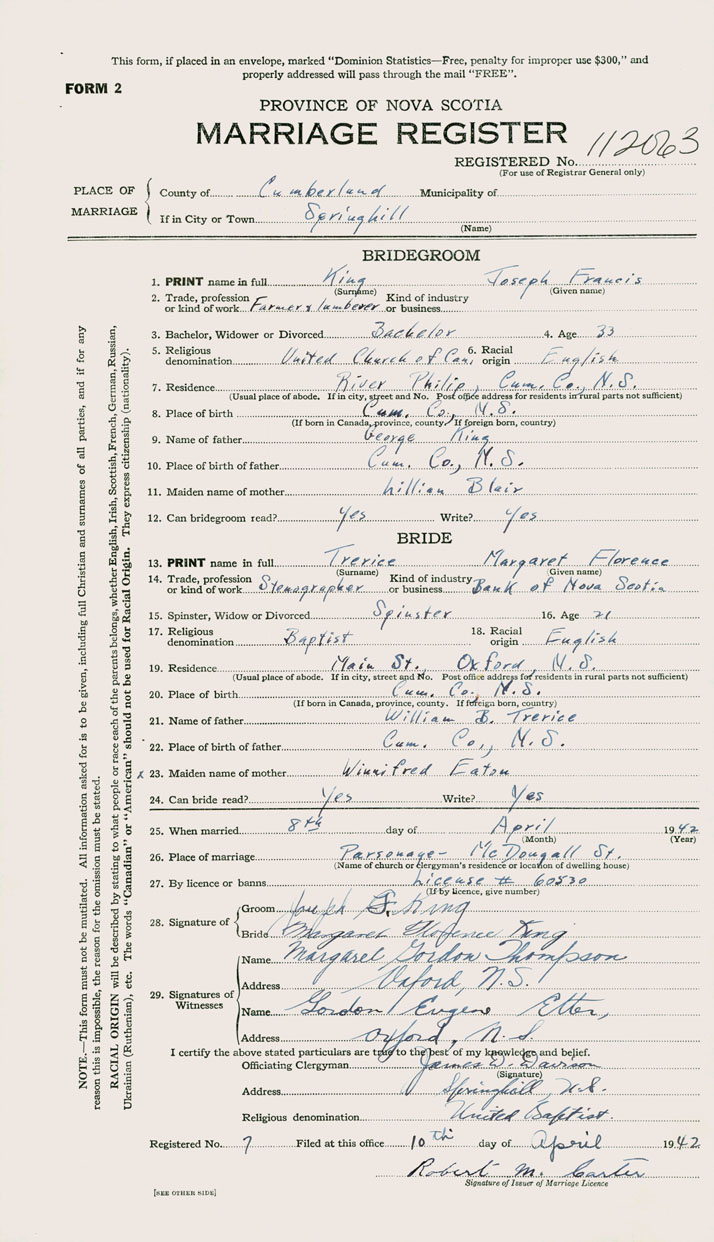 This form, if placed in an envelope, marked "Dominion Statistics—Free, penalty for improper use $300," and
properly addressed will pass through the mail "FREE".
FORM 2
PROVINCE OF NOVA SCOTIA
MARRIAGE REGISTER
112063
REGISTERED No.
(For use of Registrar General only)
PLACE OF MARRIAGE
County of Cumberland Municipality of
If in City or Town Springhill
(Name)
BRIDEGROOM
1. PRINT name in full King Joseph Francis
(Surname) (Given name)
2. Trade, profession or kind of work Farmer & lumberer Kind of industry or business
3. Bachelor, Widower or Divorced Bachelor 4. Age 33
5. Religious denomination United Church of Can. 6. Racial origin English
7. Residence River Philip, Cum. Co., N.S.
(Usual place of abode. If in city, street and No. Post office address for residents in rural parts not sufficient)
8. Place of birth Cum. Co., N.S.
(If born in Canada, province, county. If foreign born, country)
9. Name of father George King
10. Place of birth of father Cum. Co., N.S.
11. Maiden name of mother Lillian Blair
12. Can bridegroom read? Yes Write? Yes
BRIDE
13. PRINT name in full Trerice Margaret Florence
(Surname) (Given name)
14. Trade, profession or kind of work Stenographer Kind of industry or business Bank of Nova Scotia
15. Spinster, Widow or Divorced Spinster 16. Age 21
17. Religious denomination Baptist 18. Racial origin English
19. Residence Main St., Oxford, N.S.
(Usual place of abode. If in city, street and No. Post office address for residents in rural parts not sufficient)
20. Place of birth Cum. Co., N.S.
(If born in Canada, province, county. If foreign born, country)
21. Name of father William B. Trerice
22. Place of birth of father Cum. Co., N.S.
x 23. Maiden name of mother Winnifred Eaton
24. Can bride read? Yes Write? Yes
25. When married 8th day of April 1942
(Month) (Year)
26. Place of marriage Parsonage - McDougall St.
(Name of church or clergyman's residence or location of dwelling house)
27. By licence or banns License # 60530
(If by licence, give number)
28. Signature of
Groom Joseph F. King
Bride Margaret Florence King
29. Signatures of Witnesses
Name Margaret Gordon Thompson
Address Oxford, N.S.
Name Gordon Eugene Etter,
Address Oxford, N.S.
I certify the above stated particulars are true to the best of my knowledge and belief.
Officiating Clergyman James D. Davison
(Signature)
Address Springhill, N.S.
Religious denomination United Baptist.
Registered No. 7 Filed at this office 10th day of April 1942
Robert M. Carter
Signature of Issuer of Marriage Licence
[SEE OTHER SIDE]
NOTE.—This form must not be mutilated. All information asked for is to be given, including full Christian and surnames of all parties, and if for any
reason this is impossible, the reason for the omission must be stated.
RACIAL ORIGIN will be described by stating to what people or race each of the parents belongs, whether English, Irish, Scottish, French, German, Russian,
Ukrainian (Ruthenian), etc. The words "Canadian" or "American" should not be used for Racial Origin. They express citizenship (nationality).